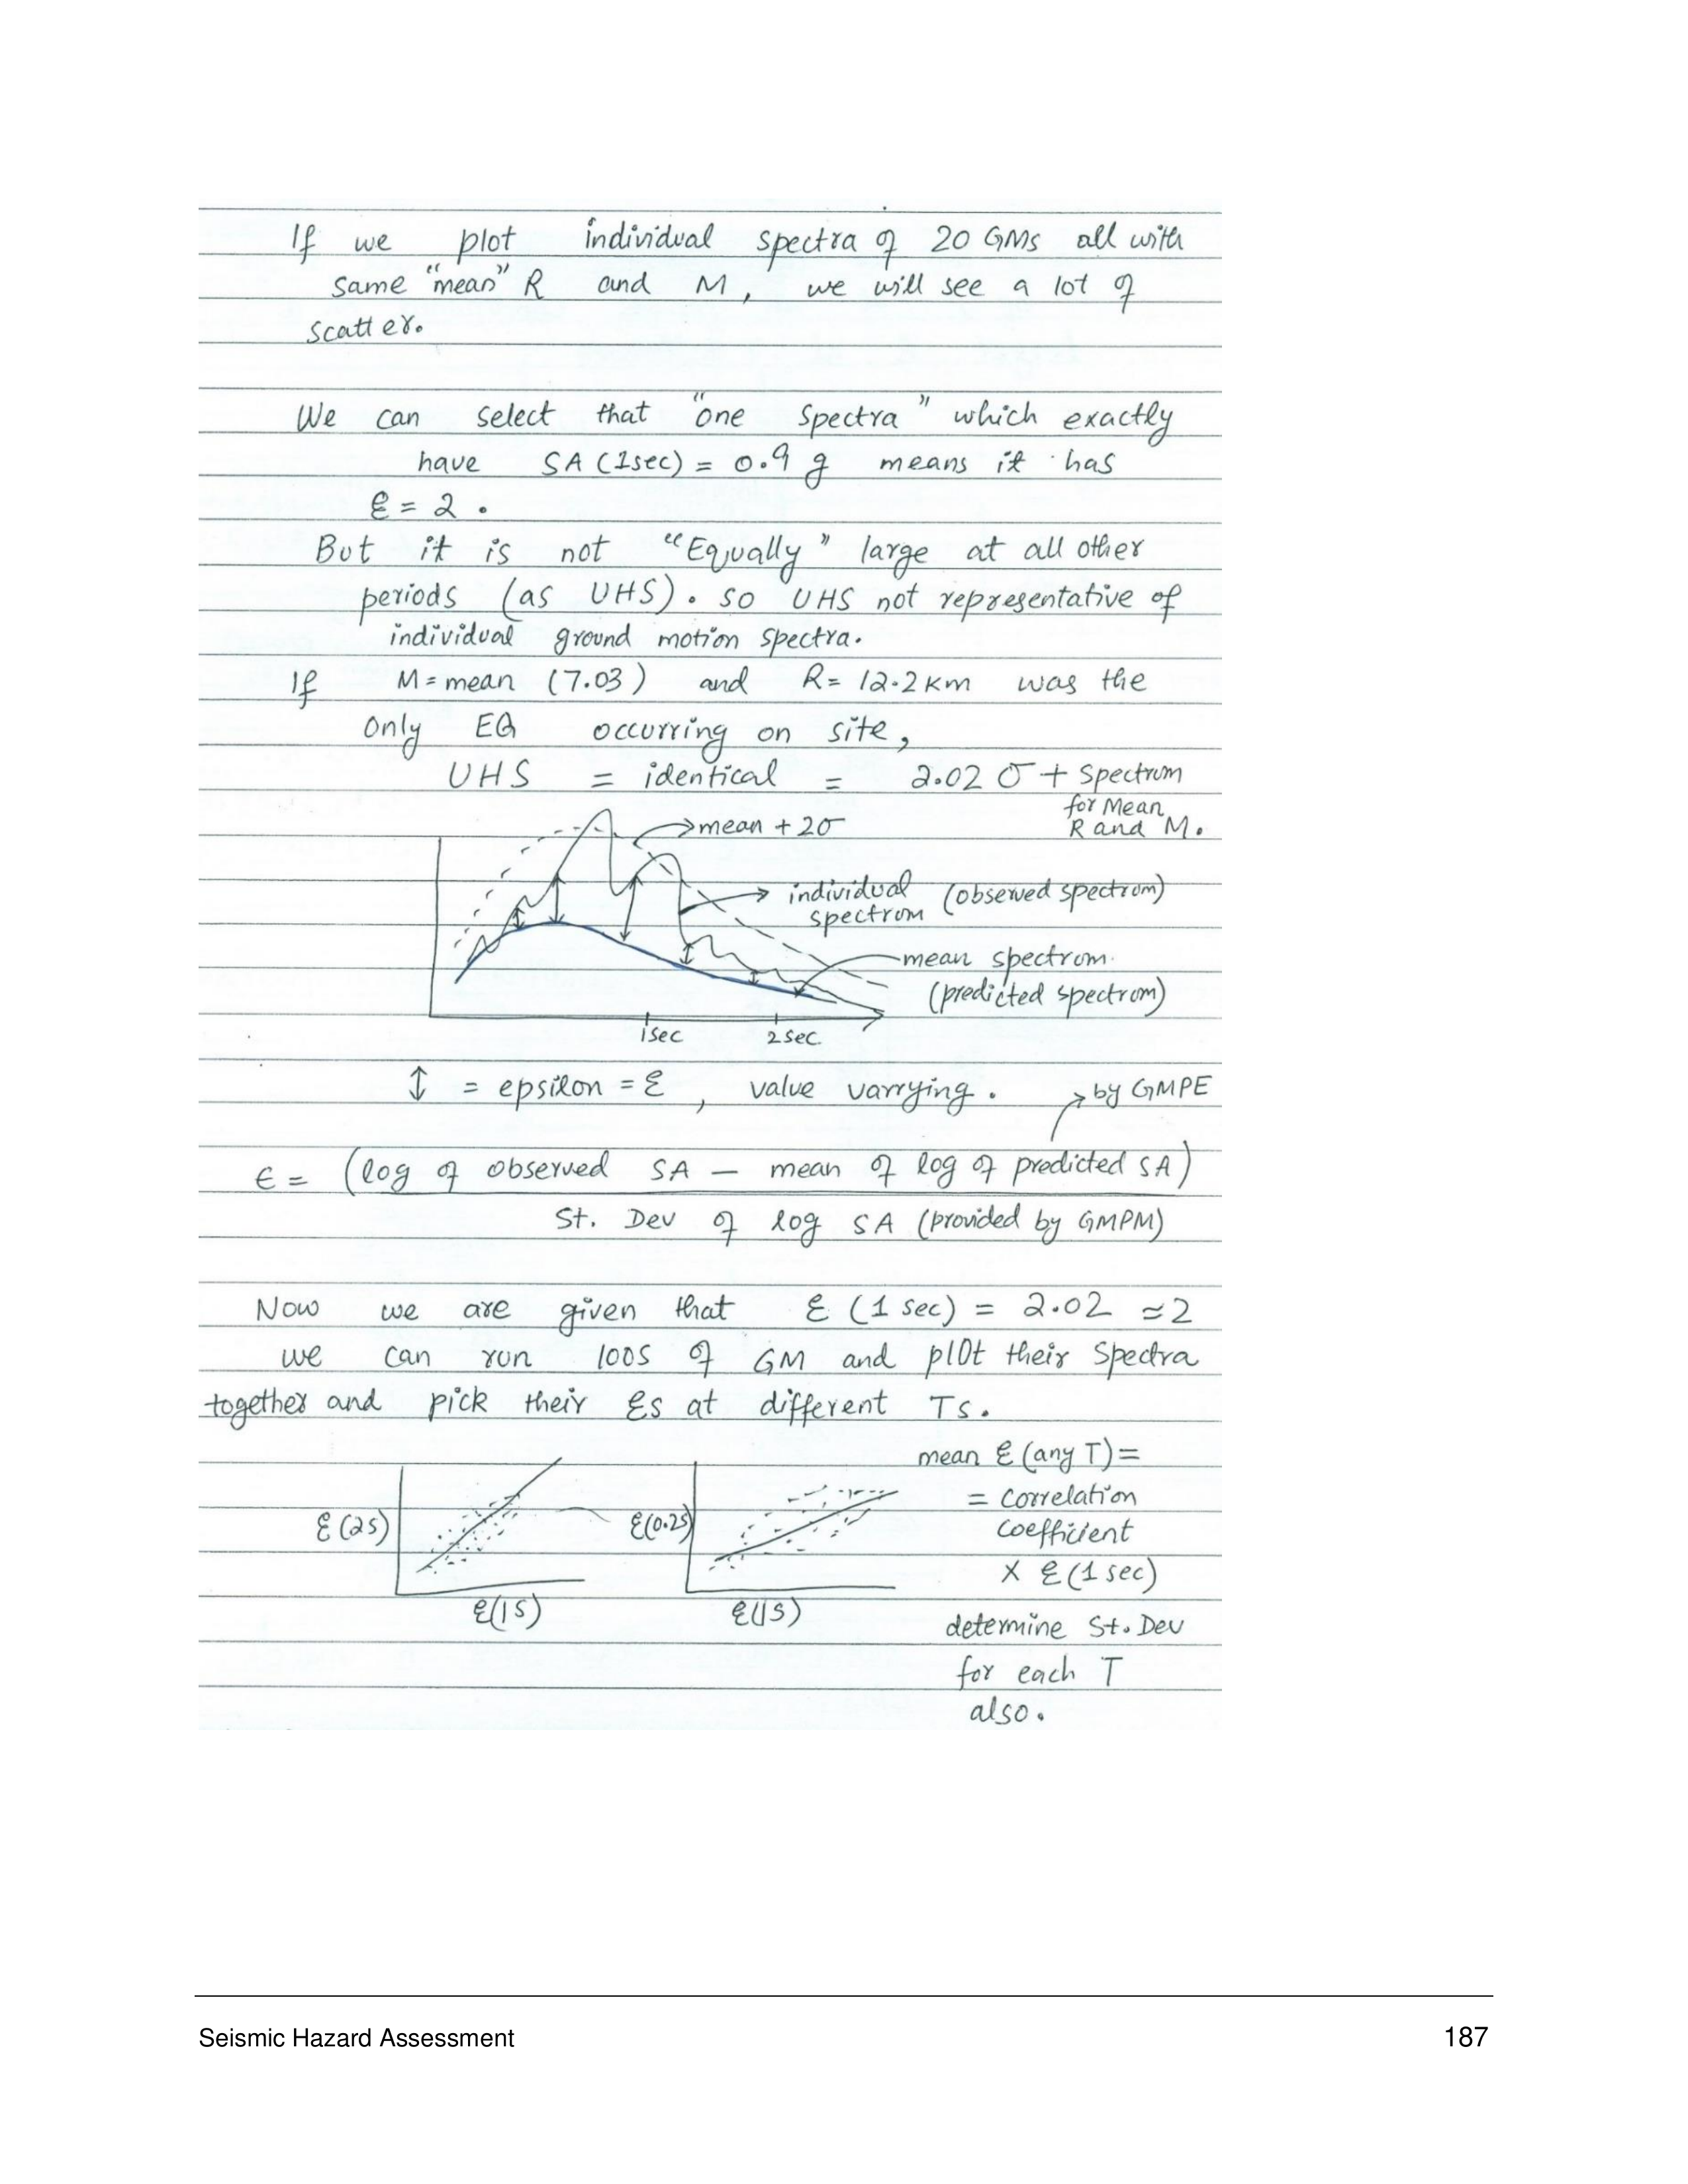 If we plot individual spectra of 20 GMs all with
same "mean" R and M, we will see a lot of
scatter.
We can select that "one Spectra" which exactly
have SA (1sec) = 0.9 g means it has
ε = 2.
But it is not "Equally" large at all other
periods (as UHS). so UHS not representative of
individual ground motion spectra.
If M = mean (7.03) and R = 12.2 km was the
only EQ occurring on site,
UHS = identical = 2.02 σ + spectrum
for Mean
R and M.
mean + 2σ
individual (observed spectrum)
spectrum
mean spectrum.
(predicted spectrum)
1sec 2 sec.
↕ = epsilon = ε, value varrying. by GMPE
ε = (log of observed SA — mean of log of predicted SA)
St. Dev of log SA (provided by GMPM)
Now we are given that ε (1 sec) = 2.02 ≃ 2
we can run 100s of GM and plot their Spectra
together and pick their εs at different Ts.
mean ε (any T) =
= correlation
coefficient
X ε (1 sec)
ε (2s) ε(0.2s)
ε(1s) ε(1s)
determine St. Dev
for each T
also.
Seismic Hazard Assessment 187